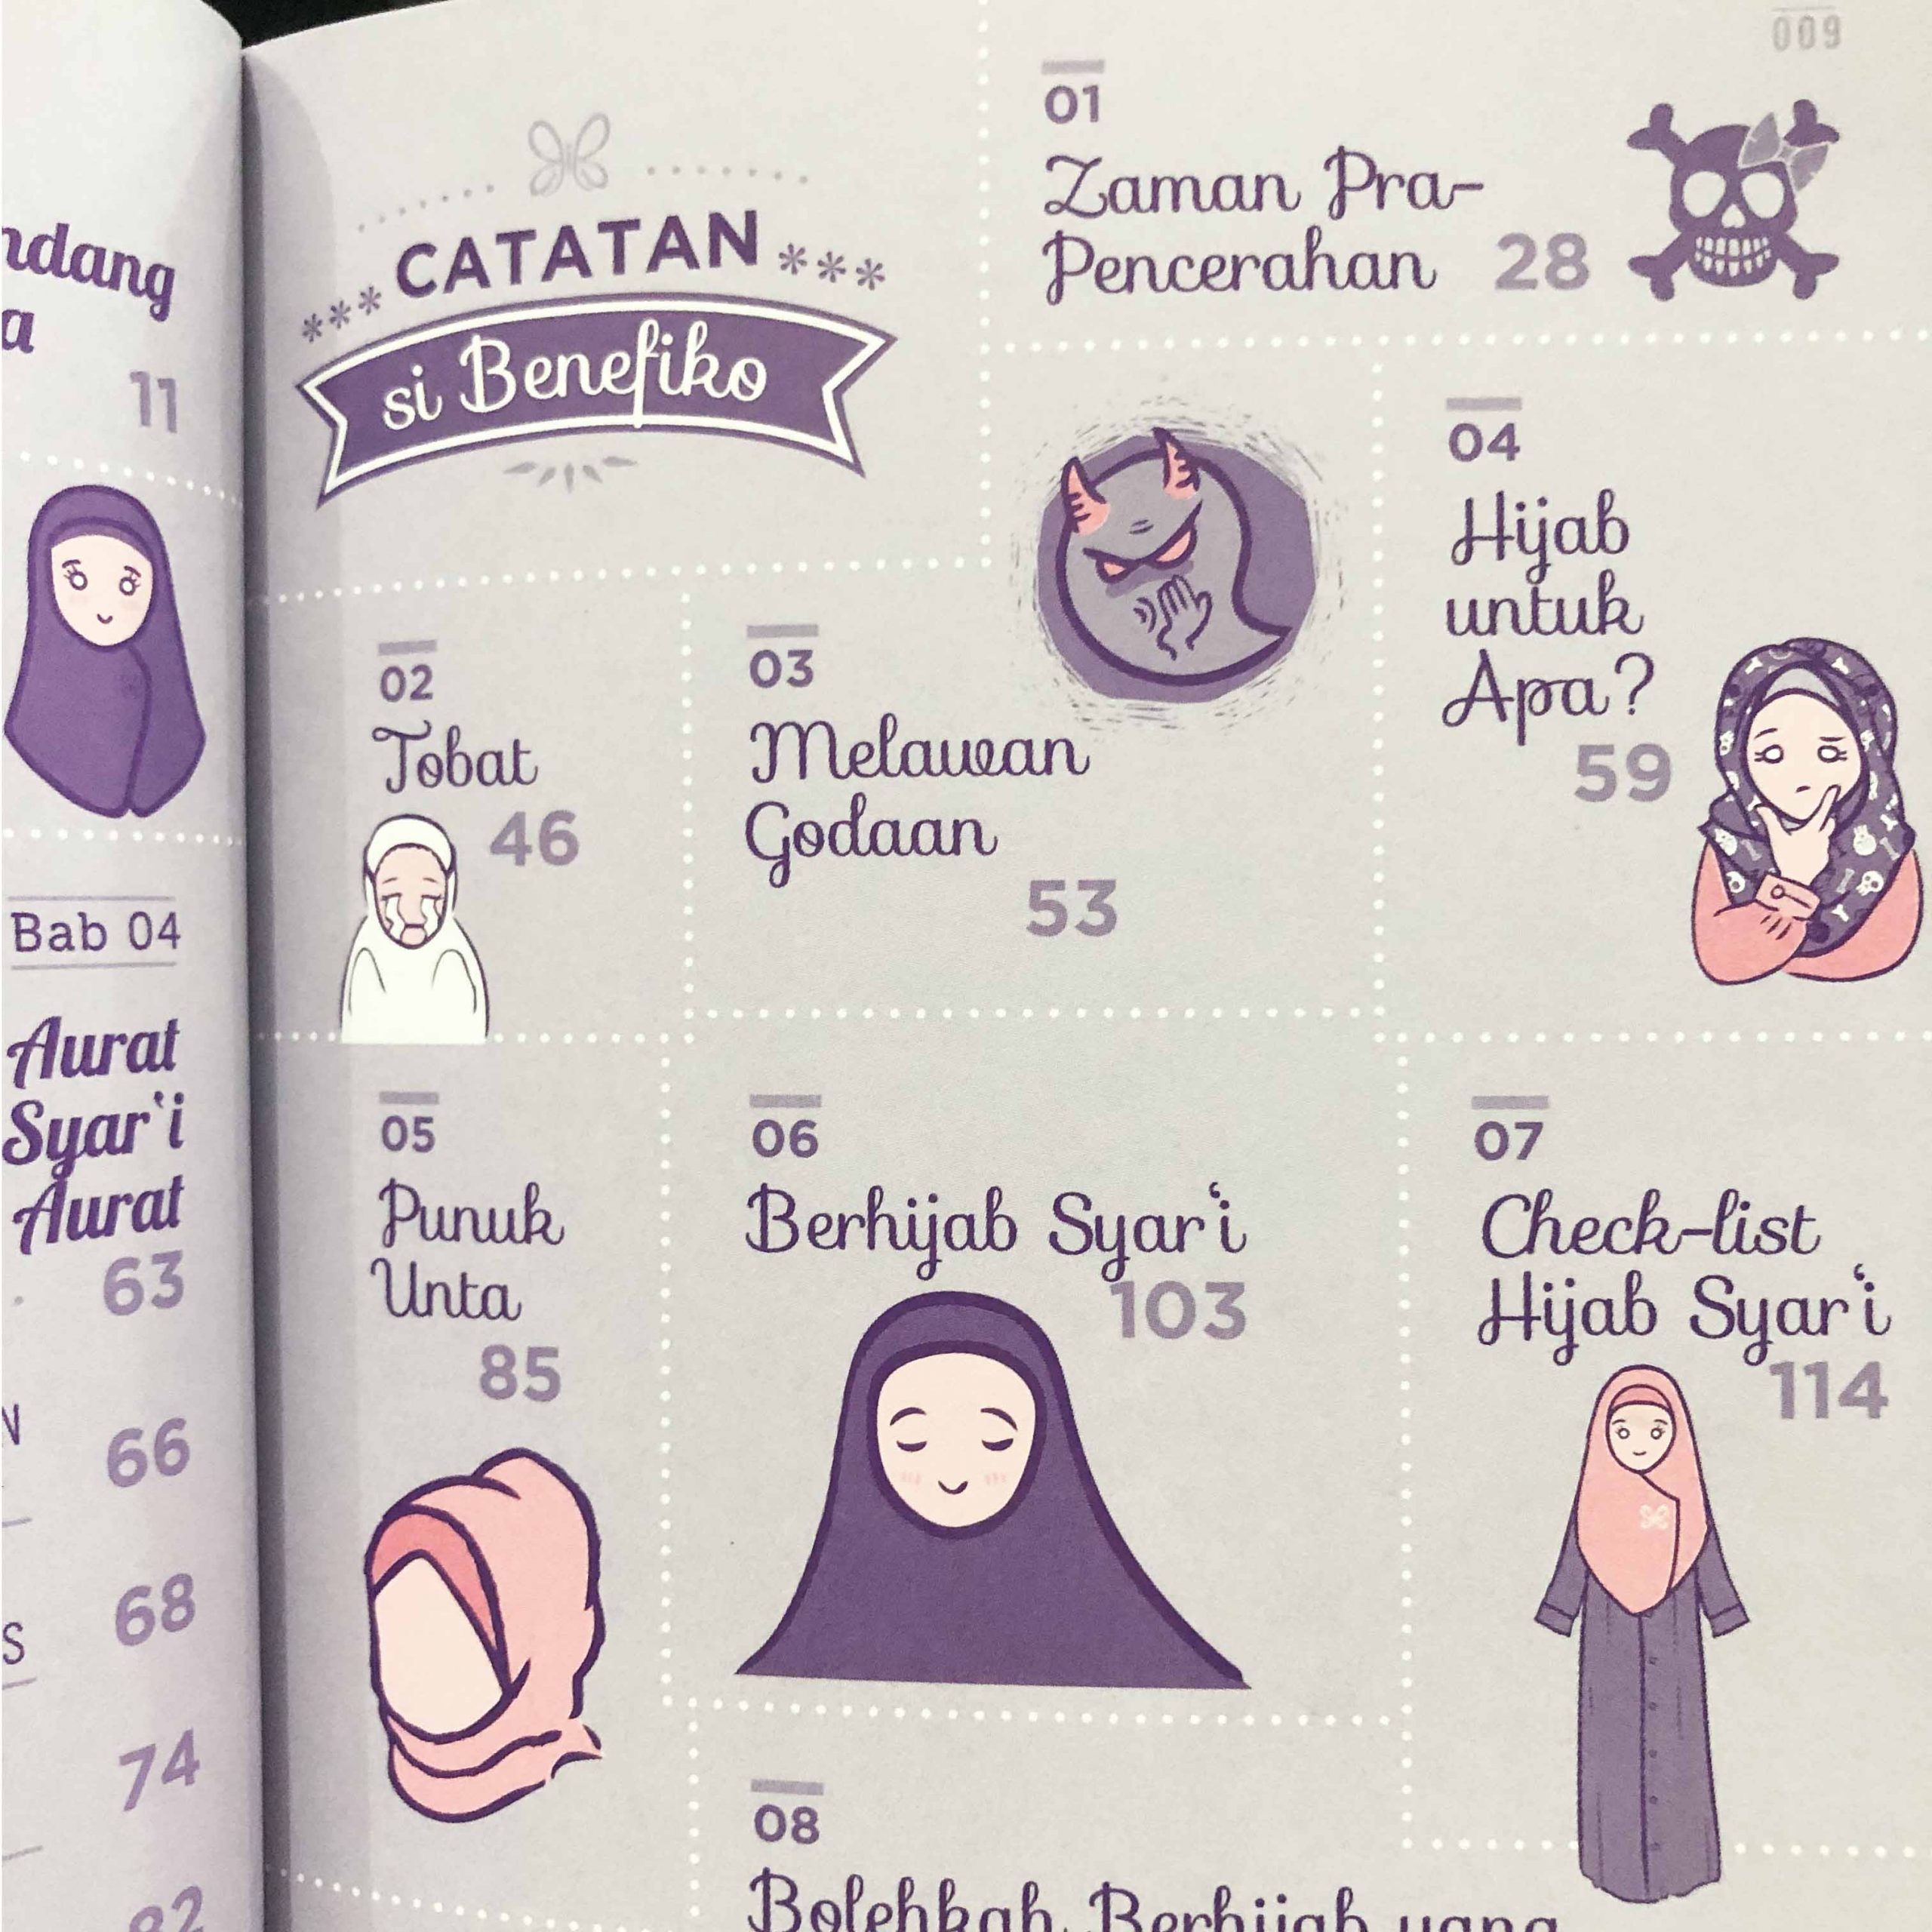 11
Bab 04
Aurat
Syar'i
Aurat
63
66
68
74
82
009
CATATAN
si Benefiko
01
Zaman Pra-
Pencerahan 28
02
Tobat
46
03
Melawan
Godaan
53
04
Hijab
untuk
Apa?
59
05
Punuk
Unta
85
06
Berhijab Syar'i
103
07
Check-list
Hijab Syar'i
114
08
Bolehkah Berhijab yang